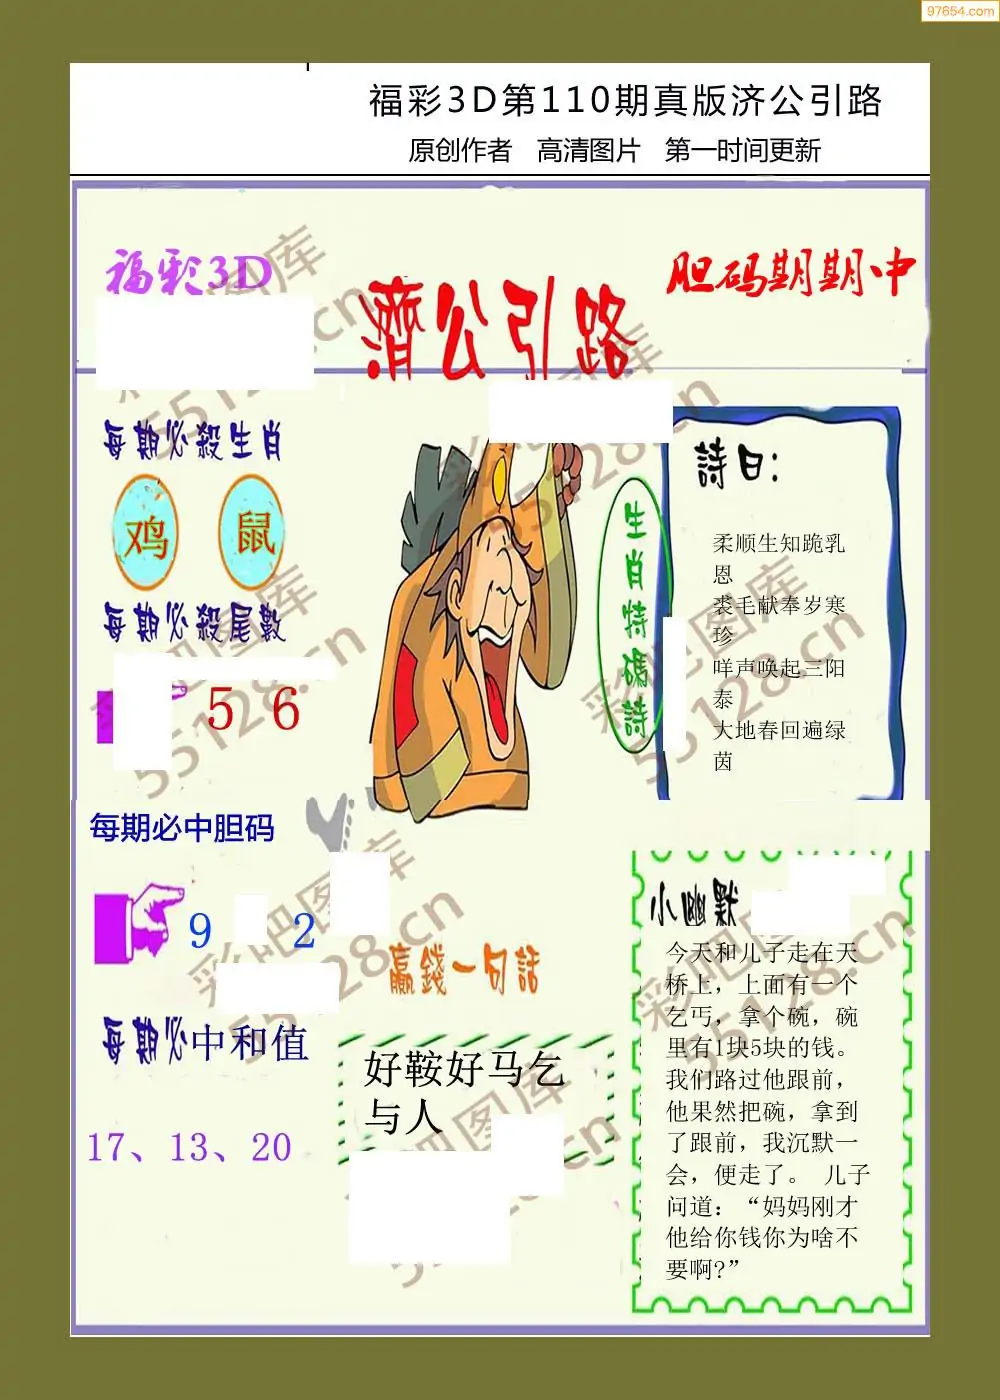 97654.com
福彩3D第110期真版济公引路
原创作者 高清图片 第一时间更新
福彩3D
濟公引路
胆码期期中
每期必殺生肖
鸡 鼠
每期必殺尾數
5 6
每期必中胆码
9 2
每期必中和值
17、13、20
生肖特碼詩
詩曰:
柔顺生知跪乳
恩
裘毛献奉岁寒
珍
咩声唤起三阳
泰
大地春回遍绿
茵
赢錢一句話
好鞍好马乞
与人
小幽默
今天和儿子走在天
桥上，上面有一个
乞丐，拿个碗，碗
里有1块5块的钱。
我们路过他跟前，
他果然把碗，拿到
了跟前，我沉默一
会，便走了。 儿子
问道：“妈妈刚才
他给你钱你为啥不
要啊?”
彩吧图库
55128.cn
彩吧图库
55128.cn
彩吧图库
55128.cn
彩吧图库
55128.cn